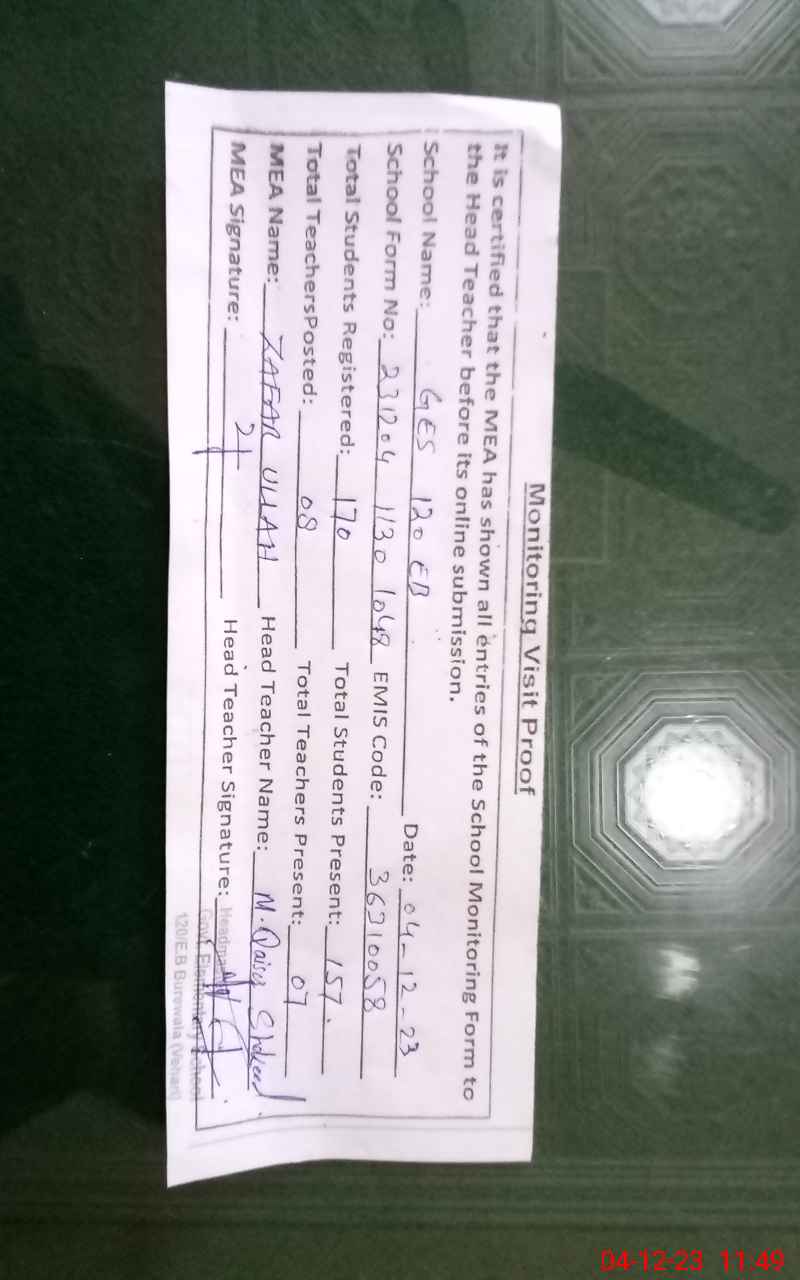 Monitoring Visit Proof
It is certified that the MEA has shown all entries of the School Monitoring Form to
the Head Teacher before its online submission.
School Name: GES 120 EB Date: 04-12-23
School Form No: 231204 1130 1048 EMIS Code: 36310058
Total Students Registered: 170 Total Students Present: 157.
Total TeachersPosted: 08 Total Teachers Present: 07
MEA Name: ZAFAR ULLAH Head Teacher Name: M. Qaisar
MEA Signature: Head Teacher Signature:
Govt. Elementary School
120/E.B Burewala (Vehari)
04-12-23 11:49